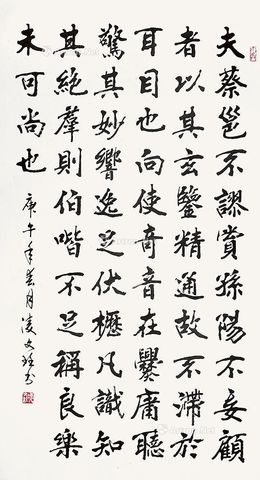 夫蔡邕不謬賞孫陽不妄顧
者以其玄鑒精通故不滯於
耳目也向使奇音在爨庸聽
驚其妙響逸足伏櫪凡識知
其絕羣則伯喈不足稱良樂
未可尚也
庚午年春月凌文